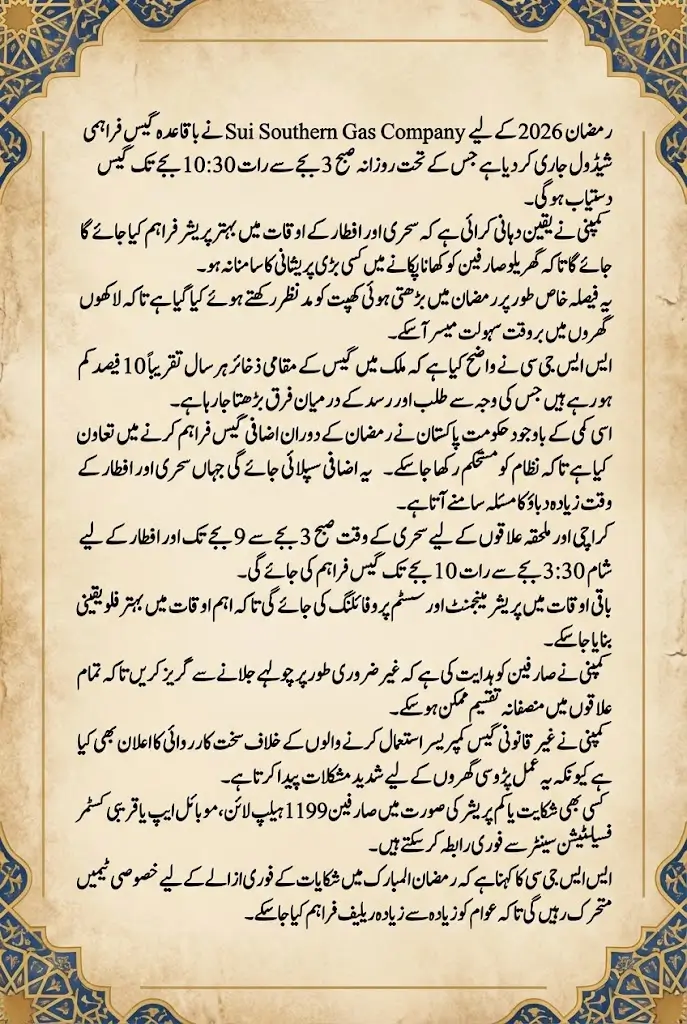 رمضان 2026 کے لیے Sui Southern Gas Company نے باقاعدہ گیس فراہمی
شیڈول جاری کر دیا ہے جس کے تحت روزانہ صبح 3 بجے سے رات 10:30 بجے تک گیس
دستیاب ہوگی۔
کمپنی نے یقین دہانی کرائی ہے کہ سحری اور افطار کے اوقات میں بہتر پریشر فراہم کیا جائے گا
جائے گا تاکہ گھریلو صارفین کو کھانا پکانے میں کسی بڑی پریشانی کا سامنا نہ ہو۔
یہ فیصلہ خاص طور پر رمضان میں بڑھتی ہوئی کھپت کو مدنظر رکھتے ہوئے کیا گیا ہے تاکہ لاکھوں
گھروں میں بروقت سہولت میسر آ سکے۔
ایس ایس جی سی نے واضح کیا ہے کہ ملک میں گیس کے مقامی ذخائر ہر سال تقریباً 10 فیصد کم
ہو رہے ہیں جس کی وجہ سے طلب اور رسد کے درمیان فرق بڑھتا جا رہا ہے۔
اسی کمی کے باوجود حکومت پاکستان نے رمضان کے دوران اضافی گیس فراہم کرنے میں تعاون
کیا ہے تاکہ نظام کو مستحکم رکھا جا سکے۔ یہ اضافی سپلائی جائے گی جہاں سحری اور افطار کے
وقت زیادہ دباؤ کا مسئلہ سامنے آتا ہے۔
کراچی اور ملحقہ علاقوں کے لیے سحری کے وقت صبح 3 بجے سے 9 بجے تک اور افطار کے لیے
شام 3:30 بجے سے رات 10 بجے تک گیس فراہم کی جائے گی۔
باقی اوقات میں پریشر مینجمنٹ اور سسٹم پروفائلنگ کی جائے گی تاکہ اہم اوقات میں بہتر فلو یقینی
بنایا جا سکے۔
کمپنی نے صارفین کو ہدایت کی ہے کہ غیر ضروری طور پر چولہے جلانے سے گریز کریں تاکہ تمام
علاقوں میں منصفانہ تقسیم ممکن ہو سکے۔
کمپنی نے غیر قانونی گیس کمپریسر استعمال کرنے والوں کے خلاف سخت کارروائی کا اعلان بھی کیا
ہے کیونکہ یہ عمل پڑوسی گھروں کے لیے شدید مشکلات پیدا کرتا ہے۔
کسی بھی شکایت یا کم پریشر کی صورت میں صارفین 1199 ہیلپ لائن، موبائل ایپ یا قریبی کسٹمر
فسیلٹیشن سینٹر سے فوری رابطہ کر سکتے ہیں۔
ایس ایس جی سی کا کہنا ہے کہ رمضان المبارک میں شکایات کے فوری ازالے کے لیے خصوصی ٹیمیں
متحرک رہیں گی تاکہ عوام کو زیادہ سے زیادہ ریلیف فراہم کیا جا سکے۔